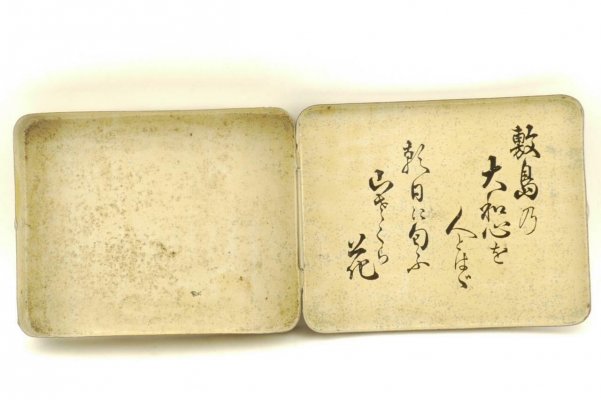 敷島乃
大和心を
人とはゞ
朝日に匂ふ
山さくら
花